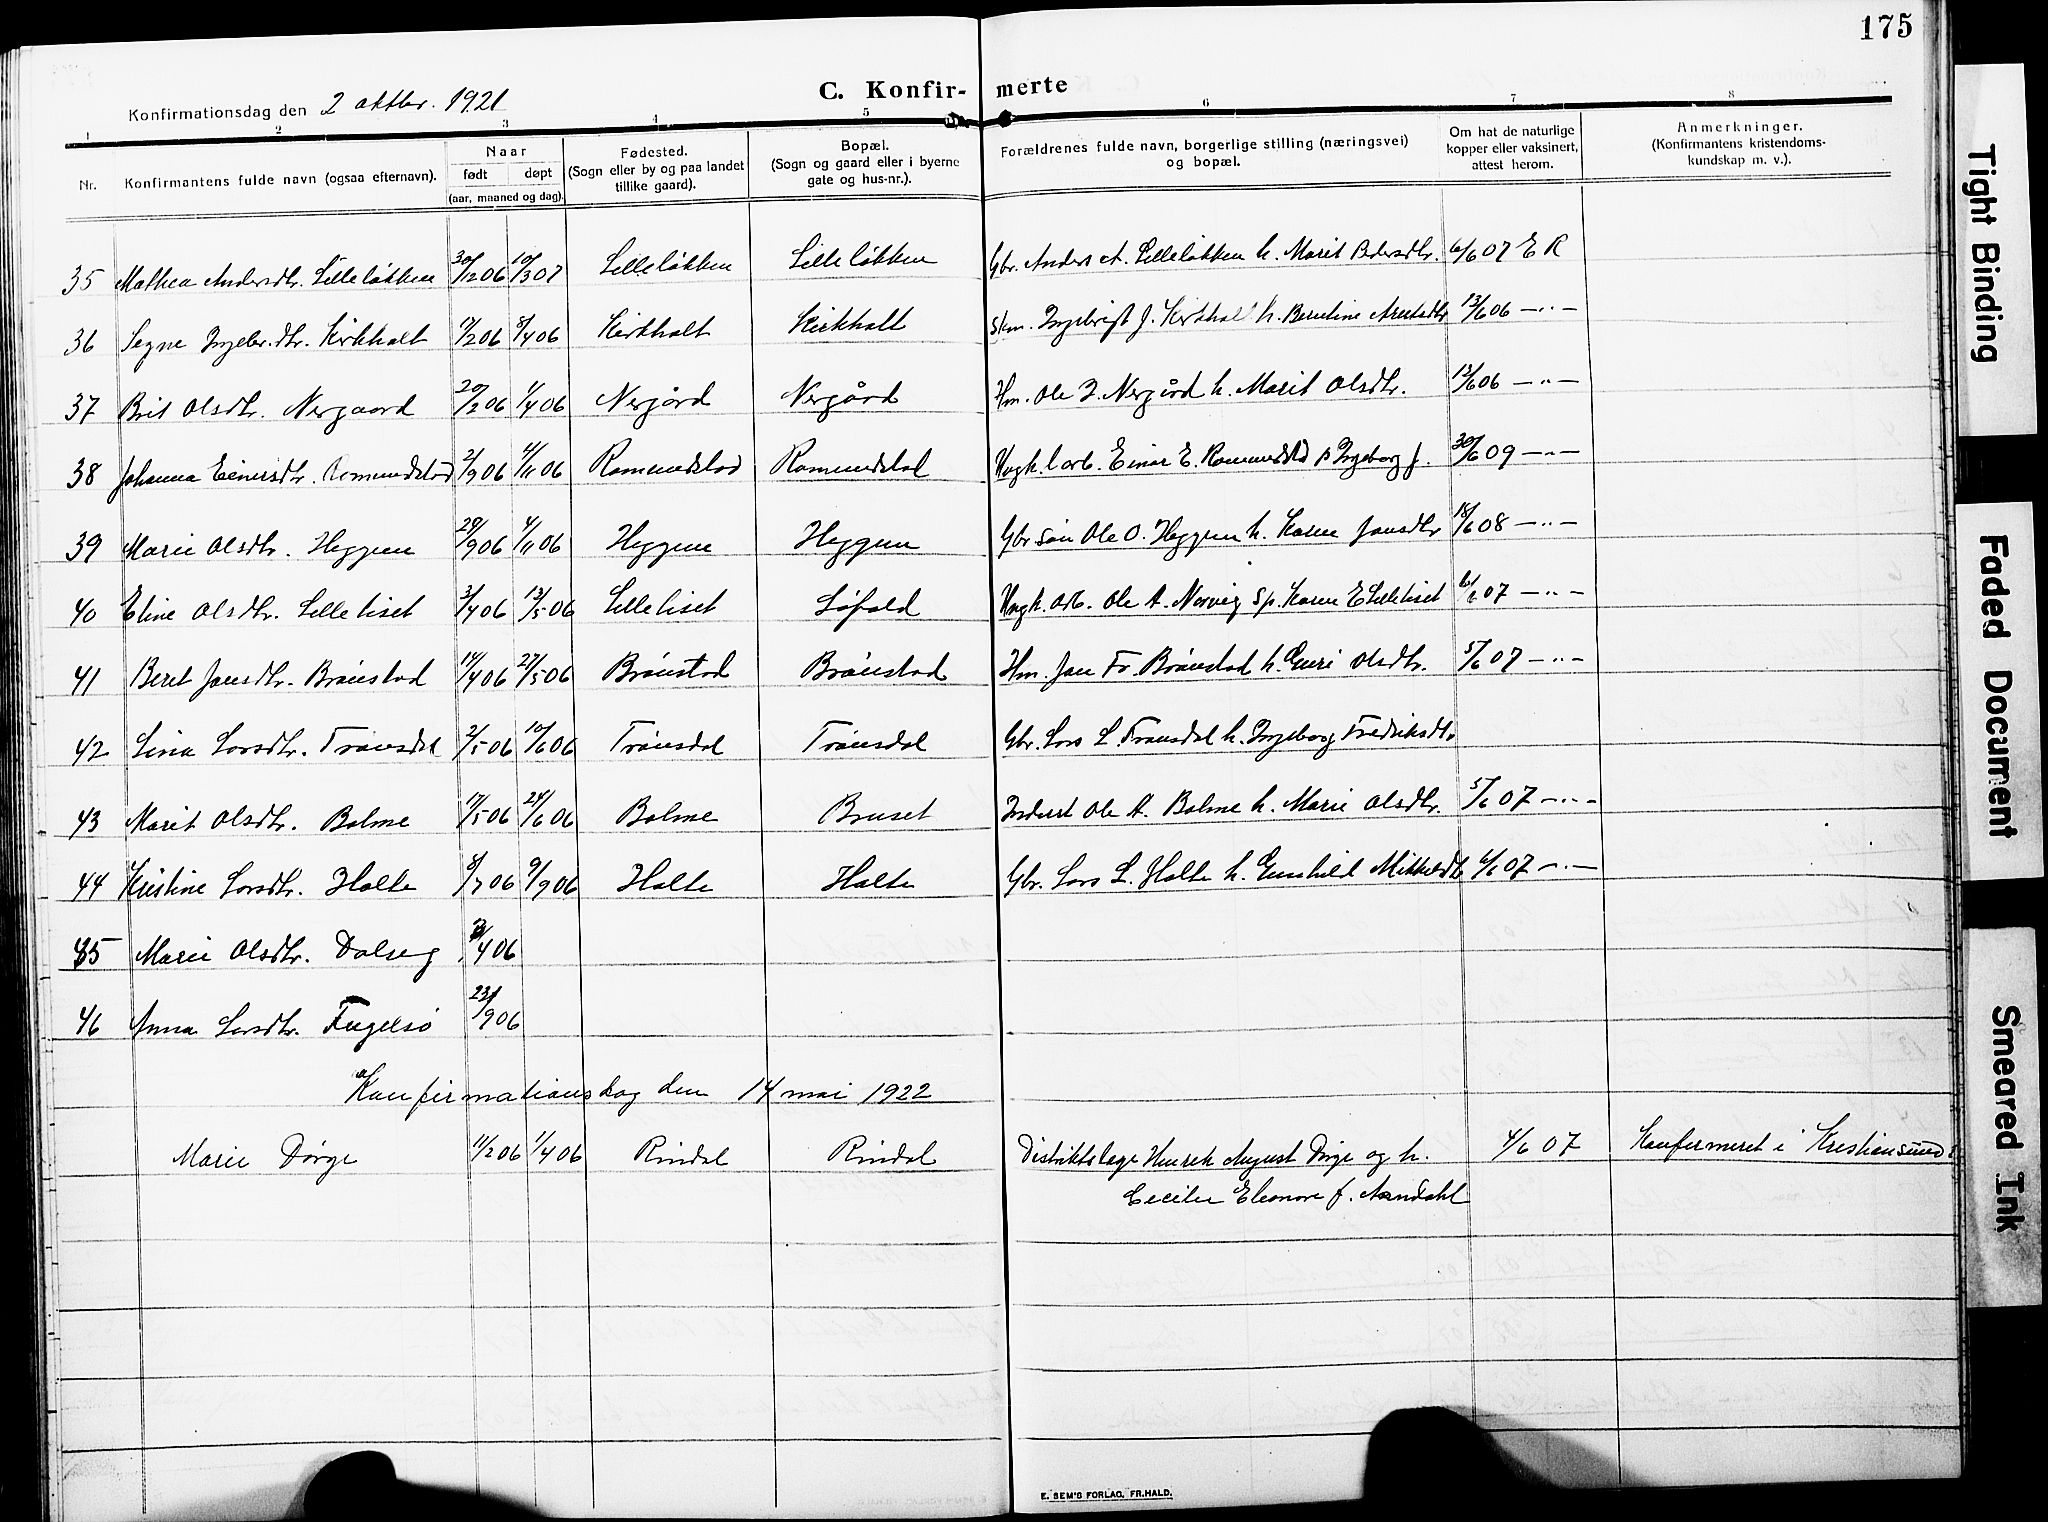 175
Konfirmationsdag den 2 oktbr. 1921
C. Konfirmerte
1 2 3 4 5 6 7 8
Nr. Konfirmantens fulde navn (ogsaa efternavn). Naar født døpt (aar, maaned og dag). Fødested. (Sogn eller by og paa landet tillike gaard). Bopæl. (Sogn og gaard eller i byerne gate og hus-nr.). Forældrenes fulde navn, borgerlige stilling (næringsvei) og bopæl. Om hat de naturlige kopper eller vaksinert, attest herom. Anmerkninger. (Konfirmantens kristendoms-kundskap m. v.).
35 Mathea Andersdtr. Lilleløkken 30/12 06 10/3 07 Lilleløkken Lilleløkken Gbr. Anders A. Lilleløkken h. Marit Pedersdtr. 6/6 07 E R
36 Segne Ingebr.dtr. Kirkholt 17/2 06 8/4 06 Kirkholt Kirkholt Ingebrigt J. Kirkhol h. Berntine 13/6 06 — „ —
37 Brit Olsdtr. Nergaard 20/2 06 1/4 06 Nergård Nergård Hm. Ole I. Nergård h. Marit Olsdtr. 13/6 06 — „ —
38 Johanna Einarsdtr. Romundstad 2/9 06 4/11 06 Romundstad Romundstad Ungk. arb. Einar E. Romundstad p Ingeborg J. 30/6 09 — „ —
39 Marie Olsdtr. Heggem 29/9 06 4/11 06 Heggem Heggem Gbr søn Ole O. Heggem h. Karen Jonsdtr 18/6 08 — „ —
40 Eline Olsdtr. Lilleliset 3/4 06 13/5 06 Lilleliset Løfald Ungk. Arb. Ole A. Nervig p. Karen E Lilleliset 6/6 07 — „ —
41 Beret Jonsdtr. Brønstad 14/4 06 27/5 06 Brønstad Brønstad Hm. Jon Fr. Brønstad h. Guri Olsdtr. 5/6 07 — „ —
42 Lina Larsdtr. Trønsdal 2/5 06 10/6 06 Trønsdal Trønsdal Gbr. Lars L. Trønsdal h. Ingeborg Fredriksdtr
43 Marit Olsdtr. Bolme 17/5 06 24/6 06 Bolme Bruset Inderst Ole A. Bolme h. Marie Olsdtr. 5/6 07 — „ —
44 Kristine Larsdtr. Holte 8/7 06 9/9 06 Holte Holte Gbr. Lars L. Holte h. Gunhild Mikkelsdtr 6/6 07 — „ —
45 Marie Olsdtr. Dalseg /4 06
46 Anna Larsdtr. Fugelsø 23/9 06
Konfirmationsdag den 14 mai 1922
Marie Dørge 11/2 06 1/4 06 Rindal Rindal Distriktslæge Henrik August Dørge og h. 4/6 07 Konfirmeret i Kristiansund
Cecilie Eleonore f. Arndahl
E. SEM'S FORLAG, FR.HALD.
Tight Binding
Faded Document
Smeared Ink